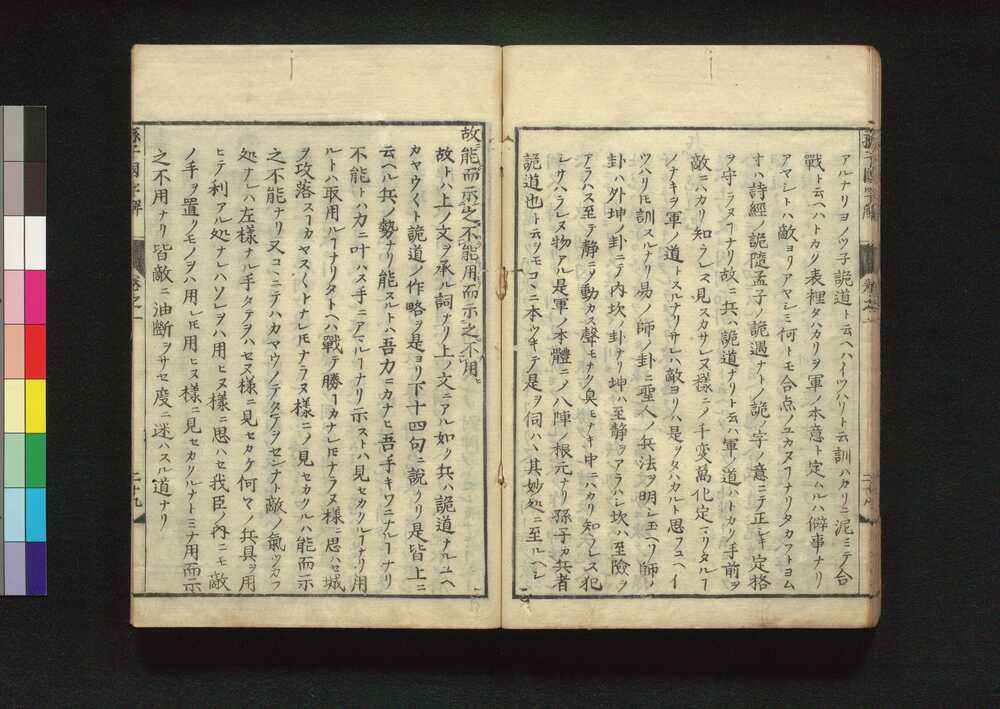 アルナリヨノツ子詭道ト云ヘハイツハリト云訓ハカリニ泥ミテ合
戰ト云ヘハトカク表裡タハカリヲ軍ノ本意ト定ムルハ僻事ナリ
アマシトハ敵ヨリアマシミ何トモ合点ノユカヌヿナリタカフトヨム
オハ詩經ノ詭隨孟子ノ詭遇ナトノ詭ノ字ノ意ニテ正シキ定格
ヲ守ラヌヿナリ故ニ兵ハ詭道ナリト云ハ軍ノ道ハトカク手前ヲ
敵ニハカリ知ラレス見スカサレヌ樣ニノ千變萬化定マリタルヿ
ノナキヲ軍ノ道トスルナリサレハ敵ヨリハ是ヲタハカルト思フユヘイ
ツハリ𪜈訓スルナリ易ノ師ノ卦ニ聖人ノ兵法ヲ明シ玉ヘリ師ノ
卦ハ外坤ノ卦ニテ内坎ノ卦ナリ坤ハ至静ヲアラハシ坎ハ至險ヲ
アラハス至テ静ニ動カス聲モナク臭モナキ中ニハカリ知ラレス犯
レサハラレヌ物アル是軍ノ本體ニノ八陣ノ根元ナリ孫子カ兵者
詭道也ト云ヲモコヽニ本ツキテ是ヲ伺ハヽ其妙処ニ至ルヘシ
故能而示之不能用而示之不用
故トハ上ノ文ヲ承ル詞ナリ上ノ文ニアル如ク兵ハ詭道ナルユヘ
カヤウ〱ト詭道ノ作略ヲ是ヨリ下十四句ニ說クリ是皆上ニ
云ヘル兵ノ勢ナリ能スルトハ吾力ニカナヒ吾手キワニナルヿナリ
不能トハ力ニ叶ハス手ニアマルヿナリ示ストハ見セカクルヿナリ用
ルトハ取用ルヿナリタトヘハ戰テ勝ヿカナレ𪜈ナラヌ樣ニ思ハセ城
ヲ攻落スヿカヤスクトナレ𪜈ナラヌ樣ニノ見セカクルハ能而示
之不能ナリ又コヽニテハカマウノテタテヲセンナト敵ノ氣ツカフ
処ナレハ左樣ナル手タテヲハセヌ樣ニ見セカケ何マノ兵具ヲ用
ヒテ利アル処ナレハソレヲハ用ヒヌ樣ニ思ハセ我臣ノ内ニモ敵
ノ手ヲ置クモノヲハ用レ𪜈用ヒヌ樣ニ見セカクルナトミナ用而示
之不用ナリ皆敵ニ油斷ヲサセ度ニ迷ハスル道ナリ
二十九